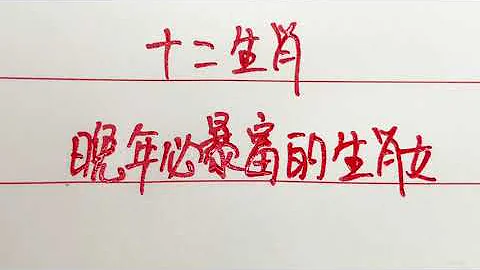 十二生肖
晚年必暴富的生肖女